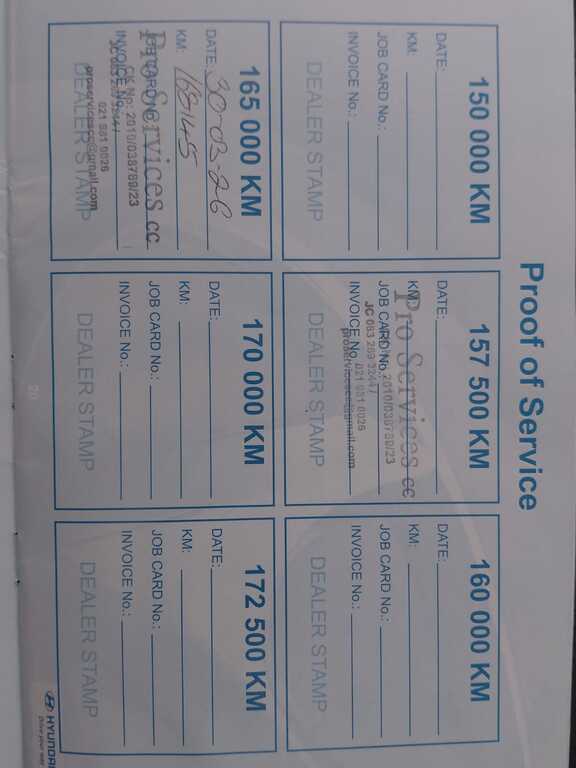 Proof of Service
150 000 KM
DATE:
KM:
JOB CARD No.:
INVOICE No.:
DEALER STAMP
157 500 KM
DATE:
KM:
JOB CARD No.:
INVOICE No.:
DEALER STAMP
Pro Services cc
2010/038789/23
021 981 0026
proservicescc@gmail.com
160 000 KM
DATE:
KM:
JOB CARD No.:
INVOICE No.:
DEALER STAMP
165 000 KM
DATE: 30-03-26
KM: 168145
JOB CARD No.:
INVOICE No.:
DEALER STAMP
Pro Services cc
CK No: 2010/038789/23
021 981 0026
proservicescc@gmail.com
170 000 KM
DATE:
KM:
JOB CARD No.:
INVOICE No.:
DEALER STAMP
172 500 KM
DATE:
KM:
JOB CARD No.:
INVOICE No.:
DEALER STAMP
20
HYUNDAI
Drive your way